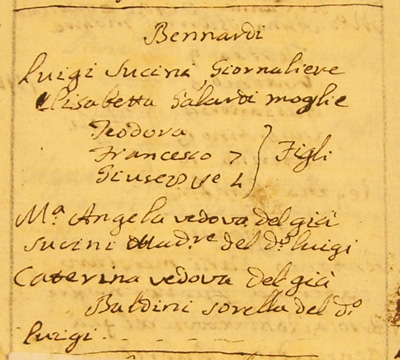 Bennardi
Luigi Sucini, Giornaliere
Elisabetta Galardi moglie
Teodora
Francesco 7 } Figli
Giuseppe 4
Mª Angela vedova del già
Sucini Madre del dº Luigi
Caterina vedova del già
Baldini sorella del dº
Luigi